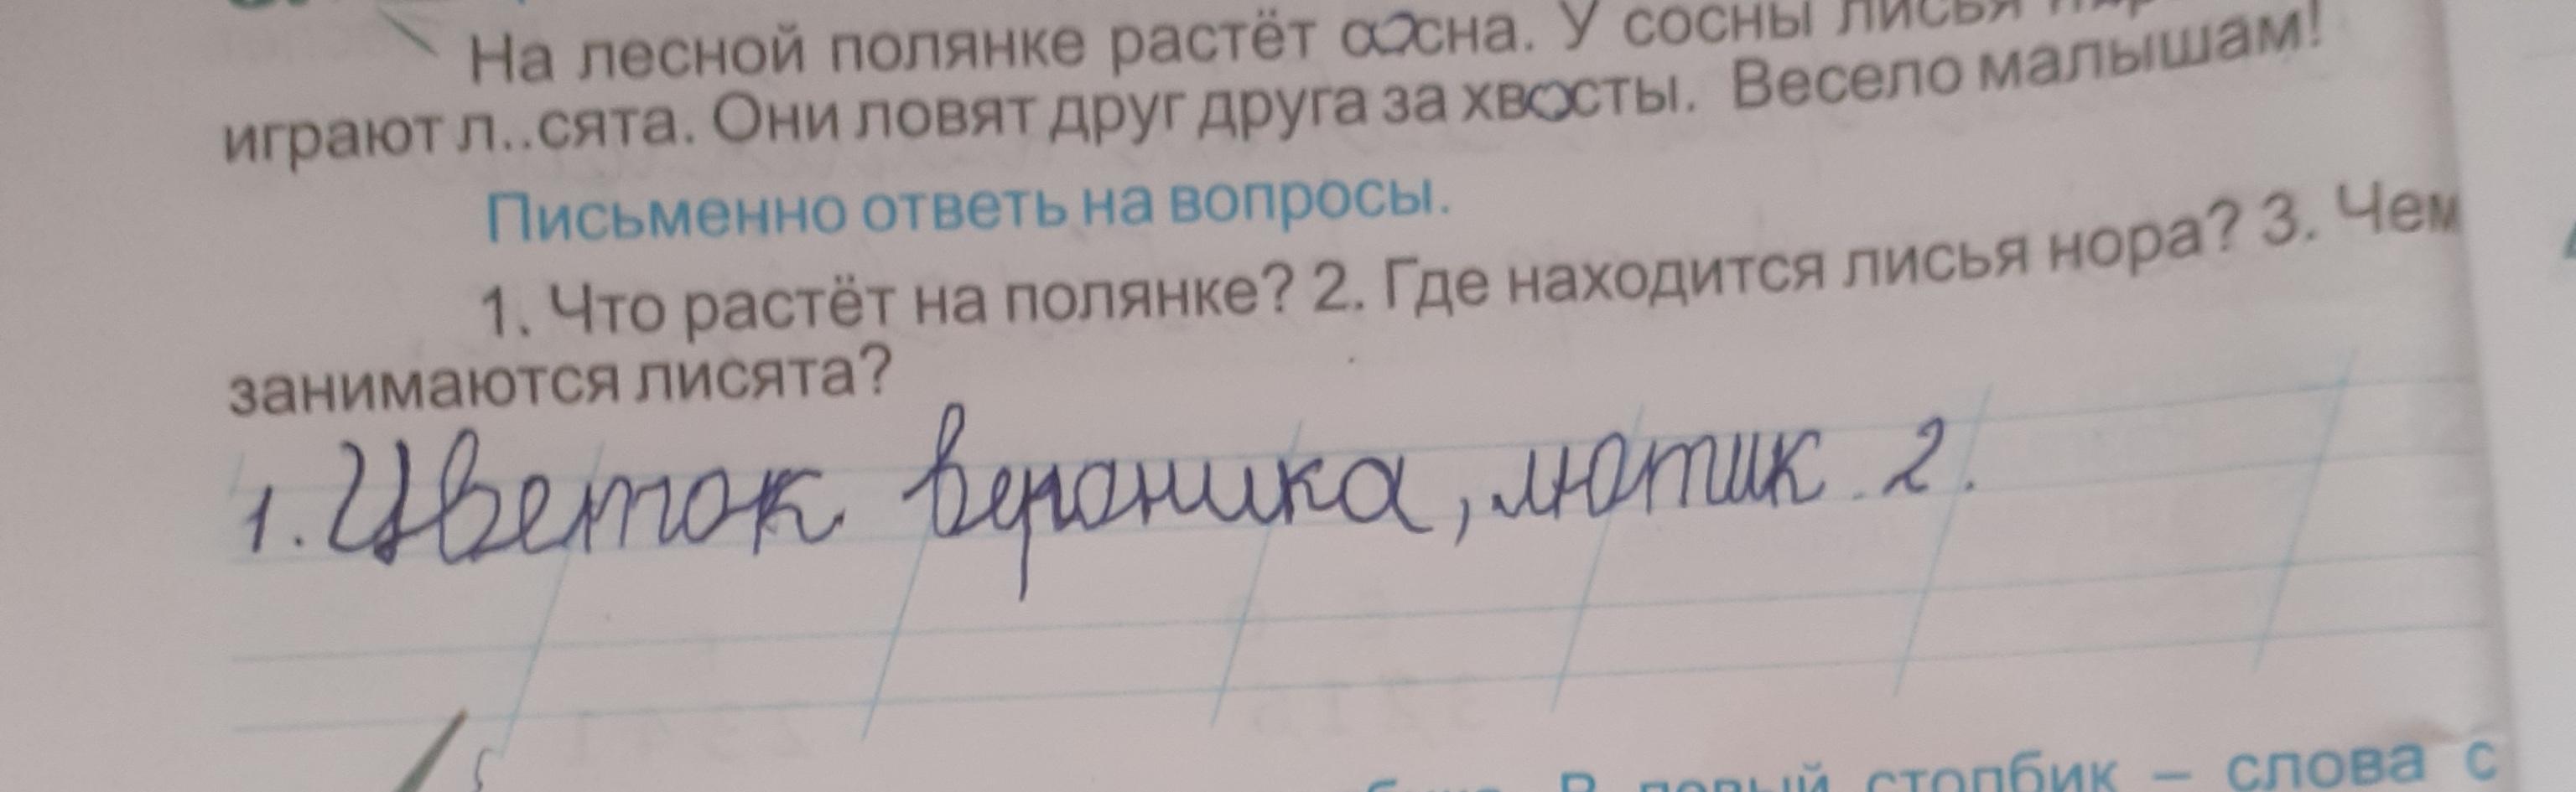 На лесной полянке растёт сосна. У сосны лисья
играют л..сята. Они ловят друг друга за хвосты. Весело малышам!
Письменно ответь на вопросы.
1. Что растёт на полянке? 2. Где находится лисья нора? 3. Чем
занимаются лисята?
1. Цветок вероника, лютик. 2.
В левый столбик – слова с